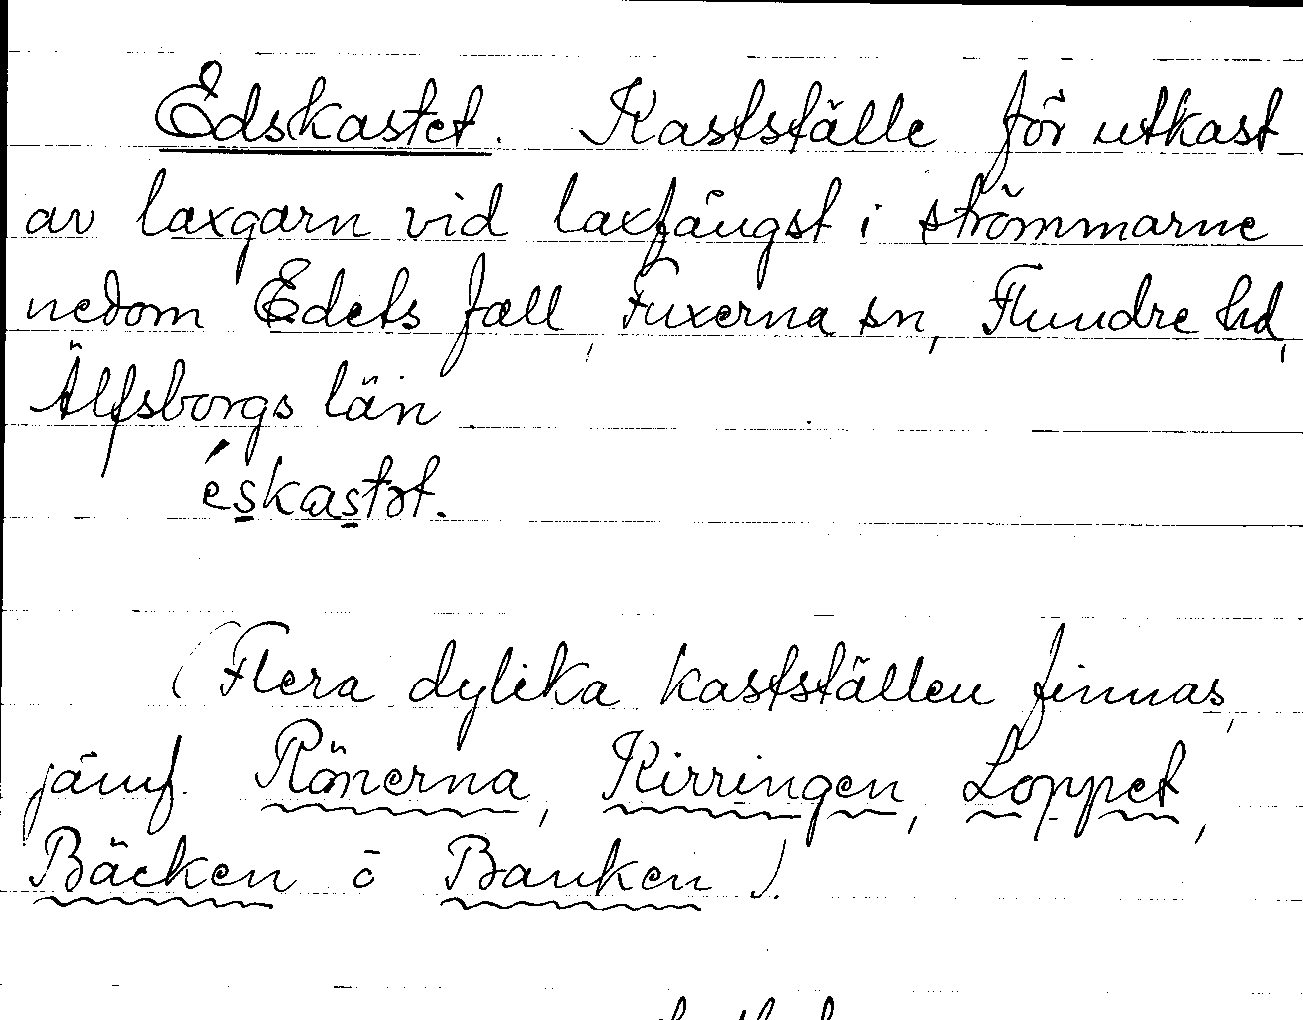 Edskastet. Kastställe för utkast
av laxgarn vid laxfångst i strömmarne
nedom Edets fall, Fuxerna sn, Flundre hd,
Älfsborgs län
éskastət.
(Flera dylika kastställen finnas,
jämf. Rönerna, Kirringen, Loppet,
Bäcken o Banken).